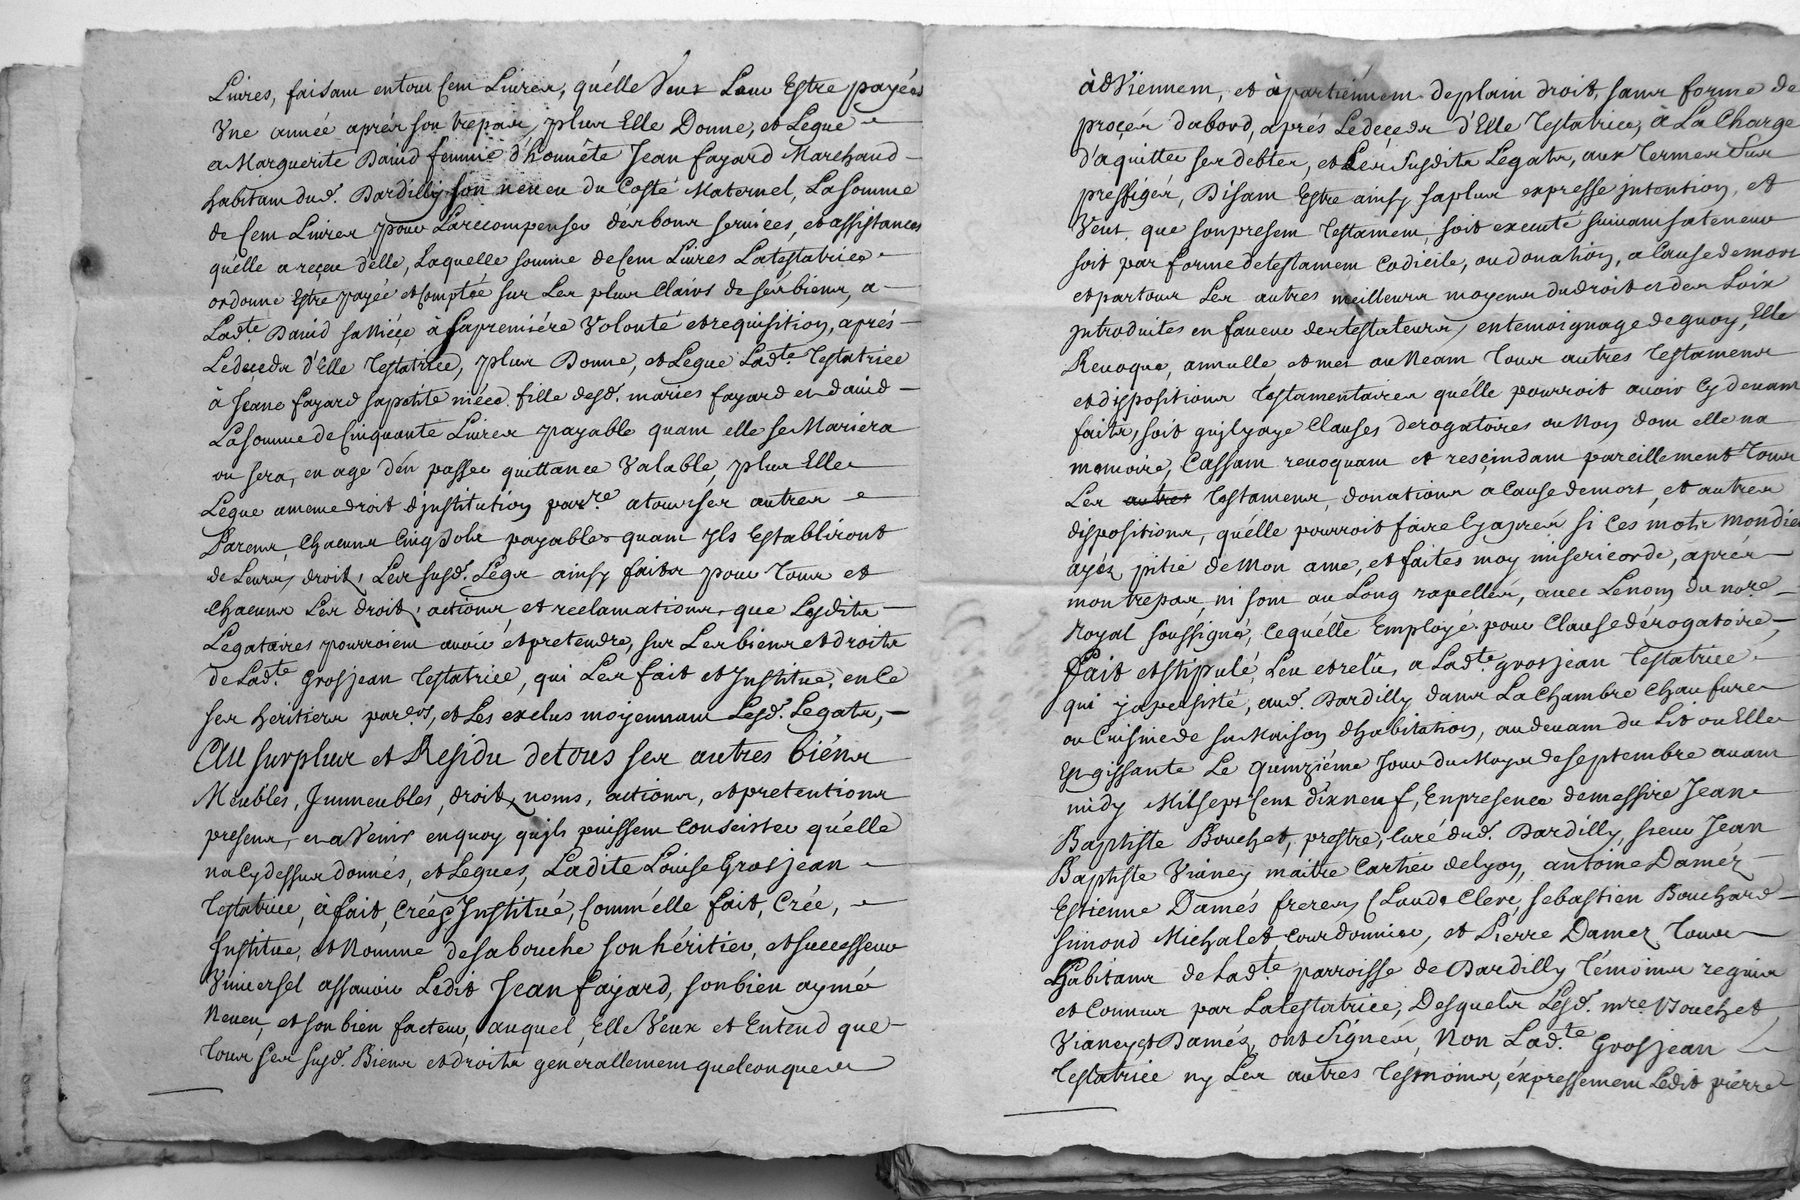 Livres, faisant en tout Cent Livres, qu'élle Veux Leur Estre payées
Vne année aprés son trepas, plus Elle Donne, et Legue
a Marguerite David femme d'honnête Jean fayard Marchand
habitant dud. Dardilly son neveu du Costé Maternel, La somme
de Cent Livres pour La recompenser dés bons services, et assistances
qu'élle a reçeu d'elle, Laquelle somme de Cent Livres La testatrice
ordonne Estre payée et Comptée sur Les plus Clairs de sés biens, a
Lad.te David sa Niéçe à sa premiére Volonté et requisition, aprés
Le deçeds d'Elle Testatrice, plus Donne, et Legue Lad.te Testatrice
à Jeane fayard sa petite niéce fille desd. mariés fayard et david
La somme de Cinquante Livres payable quant elle se Mariera
ou sera, en age d'én passer quittance Valable, plus Elle
Légue a meme droit d'jnstitution par.re a tous ses autres
Parens, Chacuns Cinq sols payables quant jls Establiront
de Leurs droit, Les susd. Légs ainsy faits pour Tous et
Chacuns Les droit, actions et reclamations, que Lesdits
Légataires pourroient avoir et pretendre, sur Les biens et droits
de Lad.te Grosjean Testatrice, qui Les fait et Institue, en Ce
ses heritiers par.ers, et Les exclus moyennant Lesd. Legats,
Au surplus et Residu de tous ses autres biéns
Meubles, Jmmeubles, droit, noms, actions, et pretentions
presens, et a Venir en quoy qu'jls puissent Consister qu'élle
na Cy dessus donnés, et Legués, Ladite Loüise Grosjean
Testatrice, à fait, Créé, Institué, Comm'élle fait, Crée,
Institue, et Nomme de sa bouche son héritier, et successeur
Vniversel assavoir Ledit Jean fayard, son bien aymé
Neveu, et son bien facteur, auquel, Elle Veux et Entend que
Tous ses susd. Biens et droits generallement quelconques
àdViennent, et àpartiénnent de plain droit, sans forme de
proçés d'abord, aprés Le deçeds d'Elle Testatrice, à La Charge
d'aquitter ses debtes, et Les susdits Legats, aux Termes sus
preffigés, Disant Estre ainsy sa plus expresse jntention, et
Veut que son present Testament, soit executé suivant sa teneur
soit par forme de testament Codicile, ou donation, a Cause de mort
et par tous Les autres meilleurs moyens du droit et des Loix
jntroduites en faveur des testateurs, en temoignage de quoy, Elle
Revoque, annulle et met au Neant Tous autres Testamens
et dispositions Testamentaires qu'élle pourroit avoir Cy devant
faits, soit qu'jl y aye Clauses derogatoires ou Non dont elle na
memoire, Cassant revoquant et resçindant pareillement Tous
Les autres Testamens, donations a Cause de mort, et autres
dispositions, qu'élle pourroit faire Cy aprés si Ces mots Mon dieu
ayéz pitié de Mon ame, et faites moy misericorde, aprés
mon trepas, ni sont au Long rapellés, avec Le nom du no.re
Royal soussigné, Ce qu'élle Employe pour Clause dérogatoire,
fait et stipulé, Leu et relû, a Lad.te grosjean Testatrice
qui y a persisté, aud. Dardilly dans La Chambre Chaufure
ou Cuisine de sa Maison d'habitation, au devant du Lit ou Elle
Est gissante Le quinziéme Jour du Moys de septembre avant
midy Mil sept Cent dix neuf, En presence de messire Jean
Baptiste Bouchet, prestre, Curé dud. Dardilly, sieur Jean
Baptiste Vianey maitre Cartier de Lyon, antoine Daméz
Estienne Damés freres, Claude Clere, sebastien Bouchard
simond Michalet Courdonnier, et Pierre Damez Tous
Habitans de Lad.te parroisse de Dardilly Témoins requis
et Connus par La testatrice, Desquels Lesd. mre. Bouchet,
Vianey et Damés, ont signés, Non Lad.te Grosjean
Testatrice ny Les autres Tesmoins, éxpressement Ledit pierre